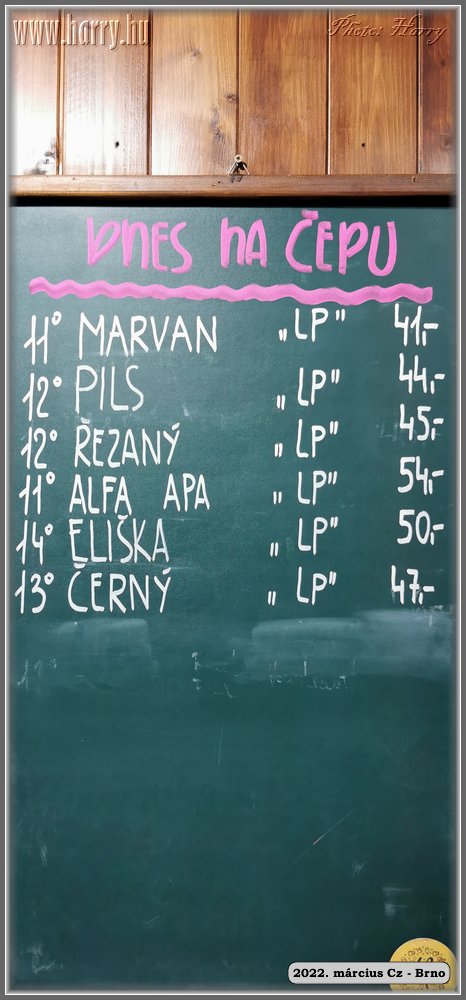 www.harry.hu
Photo: Harry
DNES NA ČEPU
11° MARVAN „LP" 41,-
12° PILS „LP" 44,-
12° ŘEZANÝ „LP" 45,-
11° ALFA APA „LP" 54,-
14° ELIŠKA „LP" 50,-
13° ČERNÝ „LP" 47,-
2022. március Cz - Brno